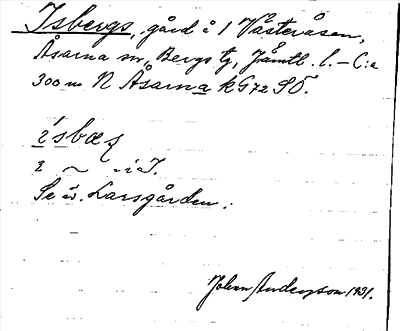 Isbergs, gård å 1 Västeråsen,
Åsarna sn, Bergs tg, Jämtl. l. – C:a
300 m N Åsarna k G72 SÖ.
i'sbæʂ
i ~ - i I.
Se äv. Larsgården.
Johan Anderson 1931.